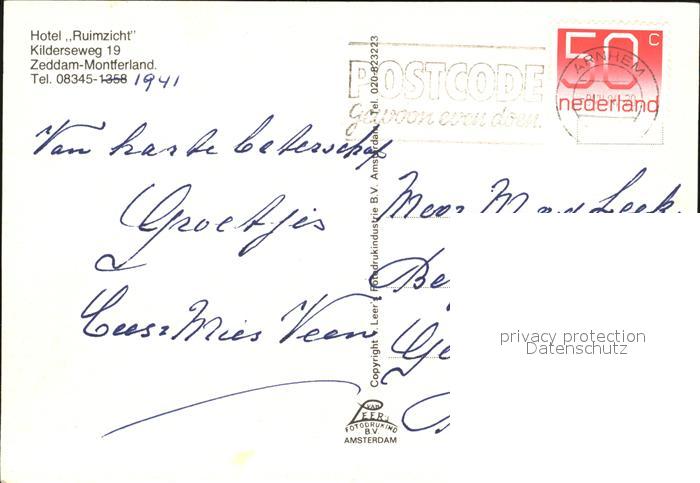 Hotel ,,Ruimzicht"
Kilderseweg 19
Zeddam-Montferland.
Tel. 08345-1358 1941
Van harte beterschap
Groetjes
Cees & Mies Veen
POSTCODE
gewoon even doen.
ARNHEM
50 c
nederland
Copyright v. Leer's Fotodrukindustrie B.V. Amsterdam Tel. 020-823223
VAN
LEER'S
FOTODRUKIND
B.V.
AMSTERDAM
privacy protection
Datenschutz